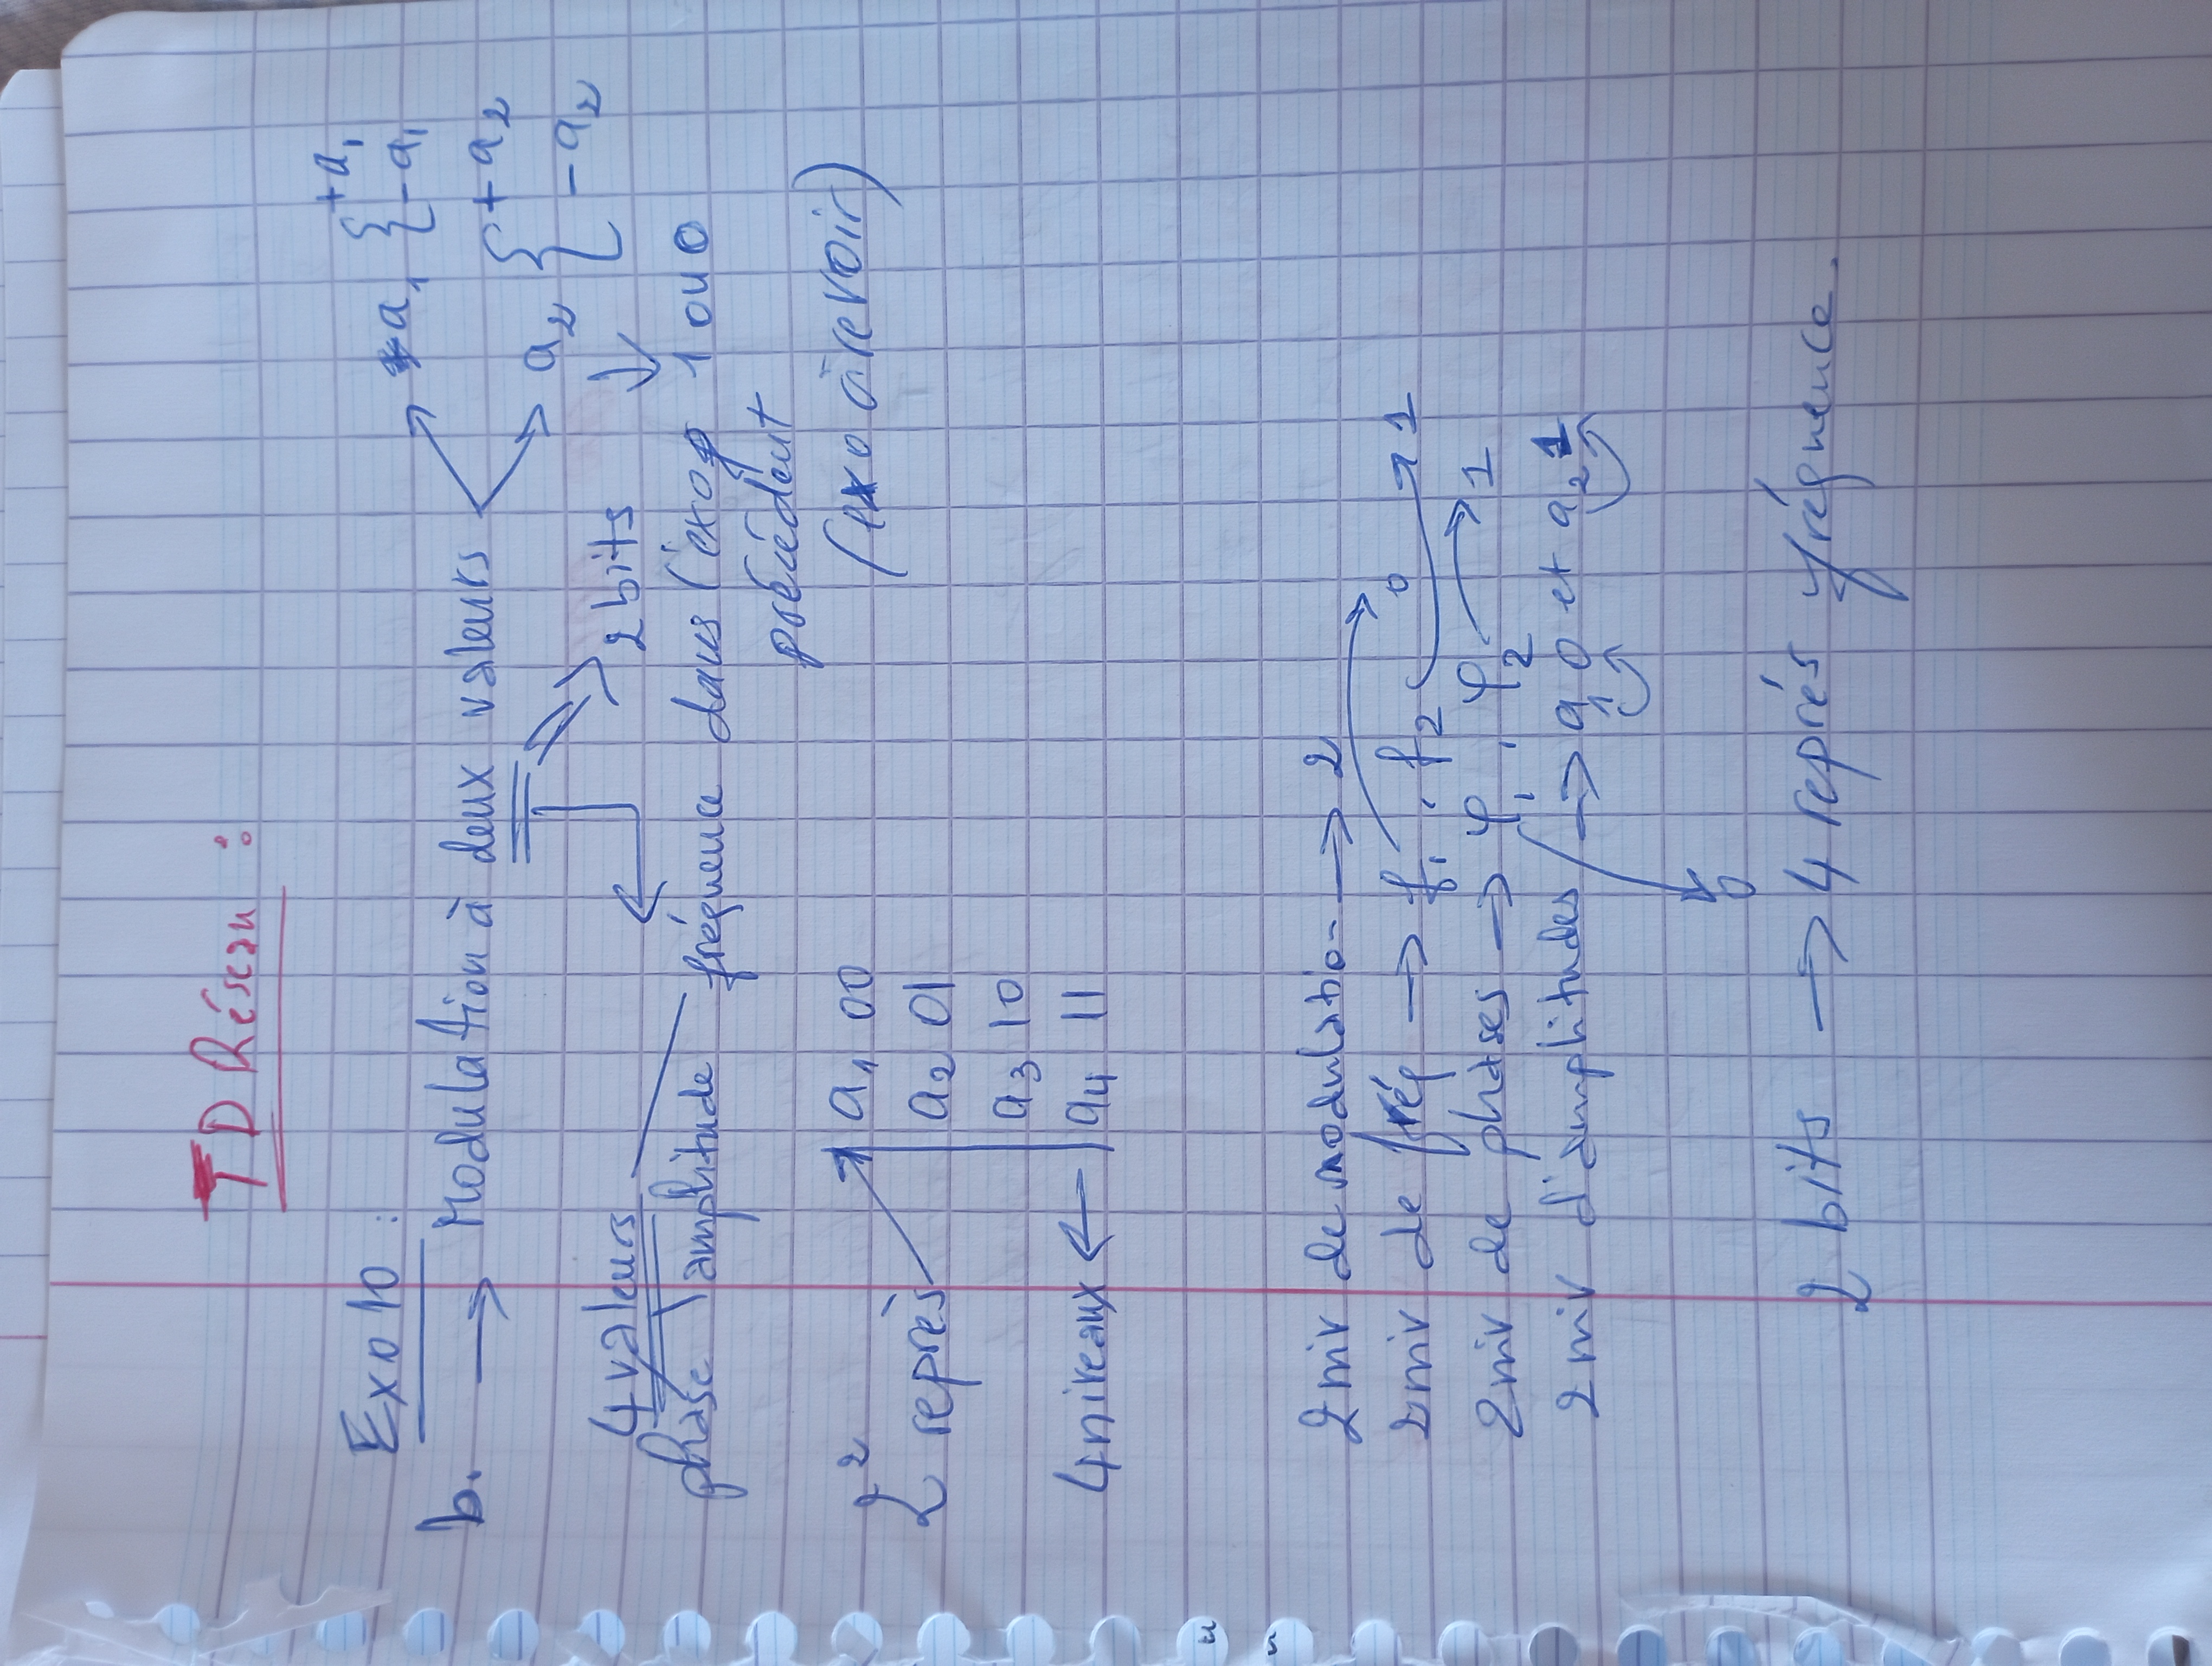 TD Réseau :
Exo 10 :
b. → Modulation à deux valeurs a1 { +a1 -a1
a2 { +a2 -a2
4 valeurs 2 bits
phase \ amplitude fréquence dans l'exo 1 ou 0
précédent
2² a1 00 (exo à revoir)
2 reprès a2 01
a3 10
4 niveaux ← a4 11
2 niv de modulation → 2
2 niv de fréq → f1, f2 0 1
2 niv de phases → φ1, φ2 → 1
2 niv d'amplitudes → a1 0 et a2 1
0
2 bits → 4 représ fréquence.